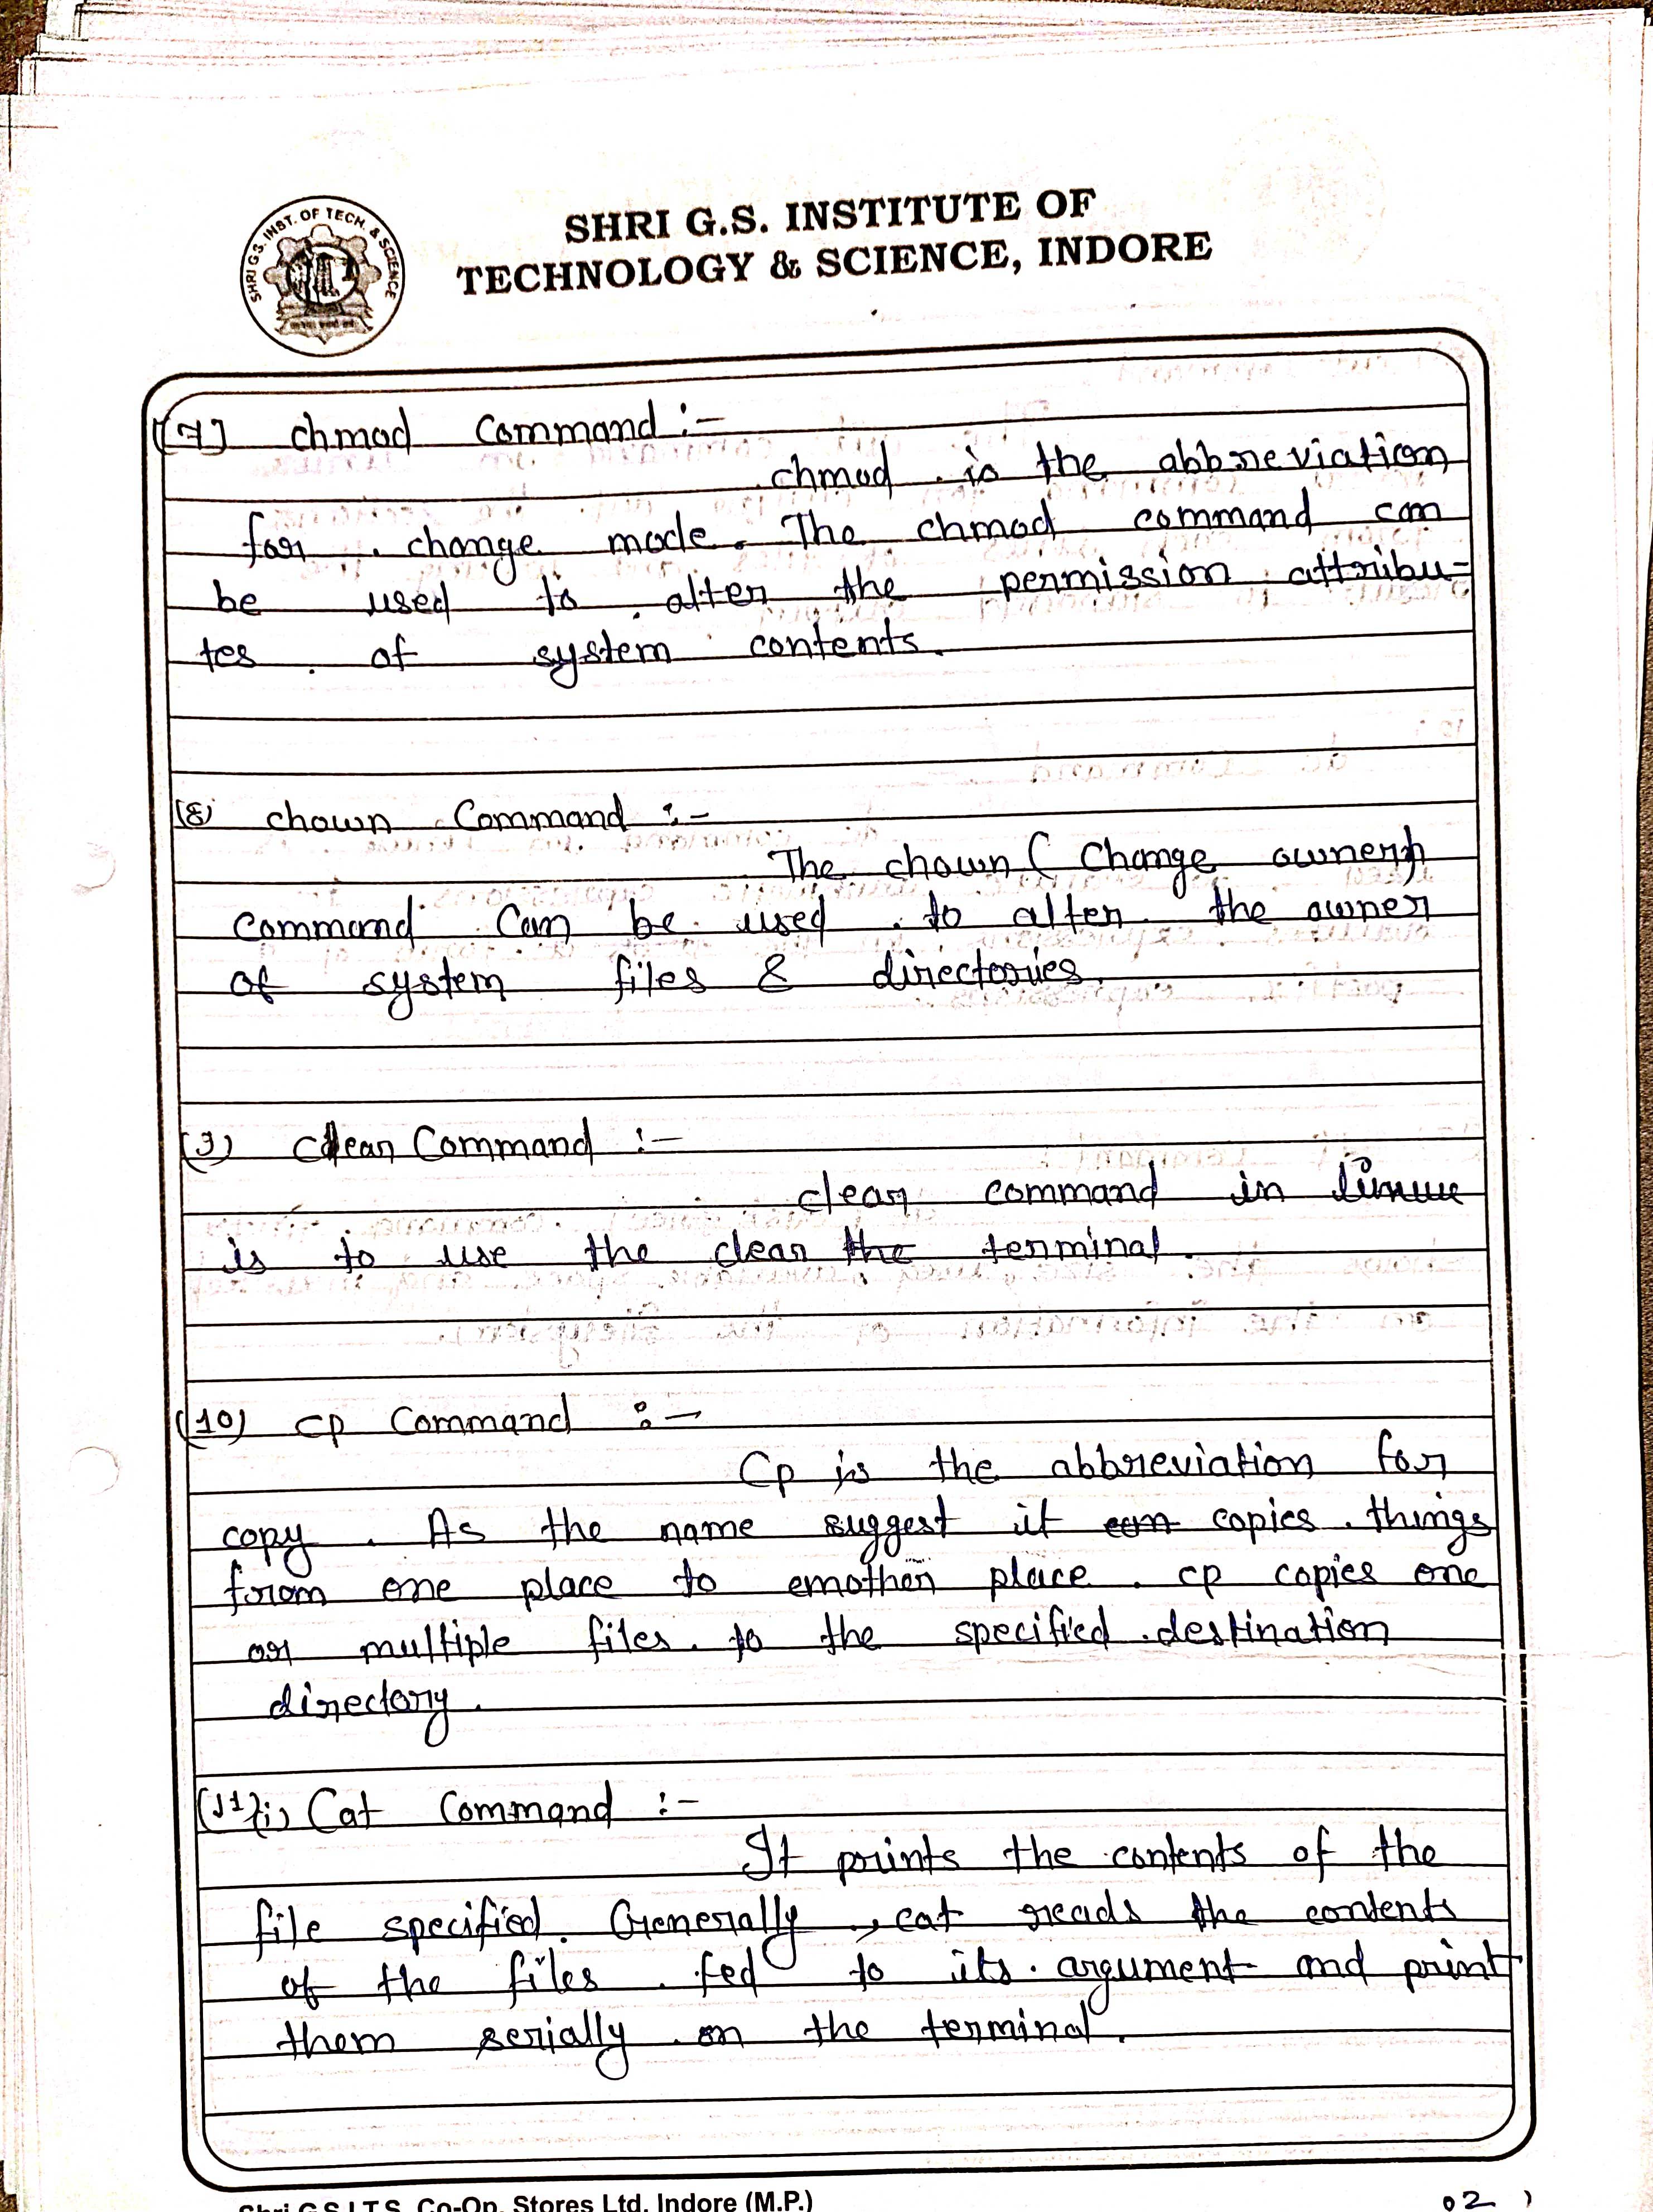 SHRI G.S. INST. OF TECH. & SCIENCE
SHRI G.S. INSTITUTE OF
TECHNOLOGY & SCIENCE, INDORE
(7) chmod Command :-
chmod is the abbreviation
for change mode. The chmod command can
be used to alter the permission attribu-
tes of system contents.
(8) chown Command :-
The chown ( Change owner)
command can be used to alter the owner
of system files & directories.
(9) Clear Command :-
clear command in linux
is to use the clear the terminal.
(10) cp Command :-
Cp is the abbreviation for
copy. As the name suggest it can copies things
from one place to another place. cp copies one
or multiple files to the specified destination
directory.
(11) (i) Cat Command :-
It prints the contents of the
file specified. Generally, cat reads the contents
of the files fed to its argument and print
them serially on the terminal.
Shri G.S.I.T.S. Co-Op. Stores Ltd. Indore (M.P.)
02